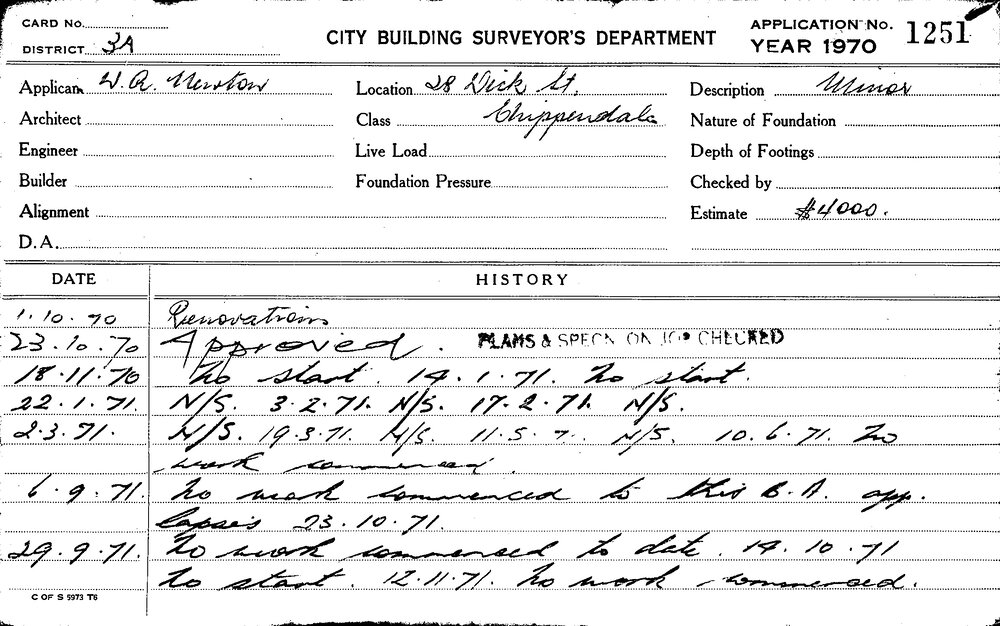 CARD No.
DISTRICT 3A
CITY BUILDING SURVEYOR'S DEPARTMENT
APPLICATION No. 1251
YEAR 1970
Applican W. R. Newton
Location 28 Dick St.
Description Minor
Architect
Class Chippendale
Nature of Foundation
Engineer
Live Load
Depth of Footings
Builder
Foundation Pressure
Checked by
Alignment
Estimate $4000.
D.A.
DATE HISTORY
1.10.70 Renovations
23.10.70 Approved. PLANS & SPECN ON JOB CHECKED
18.11.70 No start. 14.1.71. No start.
22.1.71. N/S. 3.2.71. N/S. 17.2.71. N/S.
2.3.71. N/S. 19.3.71. N/S. 11.5.7. N/S. 10.6.71. No
work commenced.
6.9.71. No work commenced to this B.A. app.
lapses 23.10.71.
29.9.71. No work commenced to date. 14.10.71
No start. 12.11.71. No work commenced.
C OF S 5973 T6